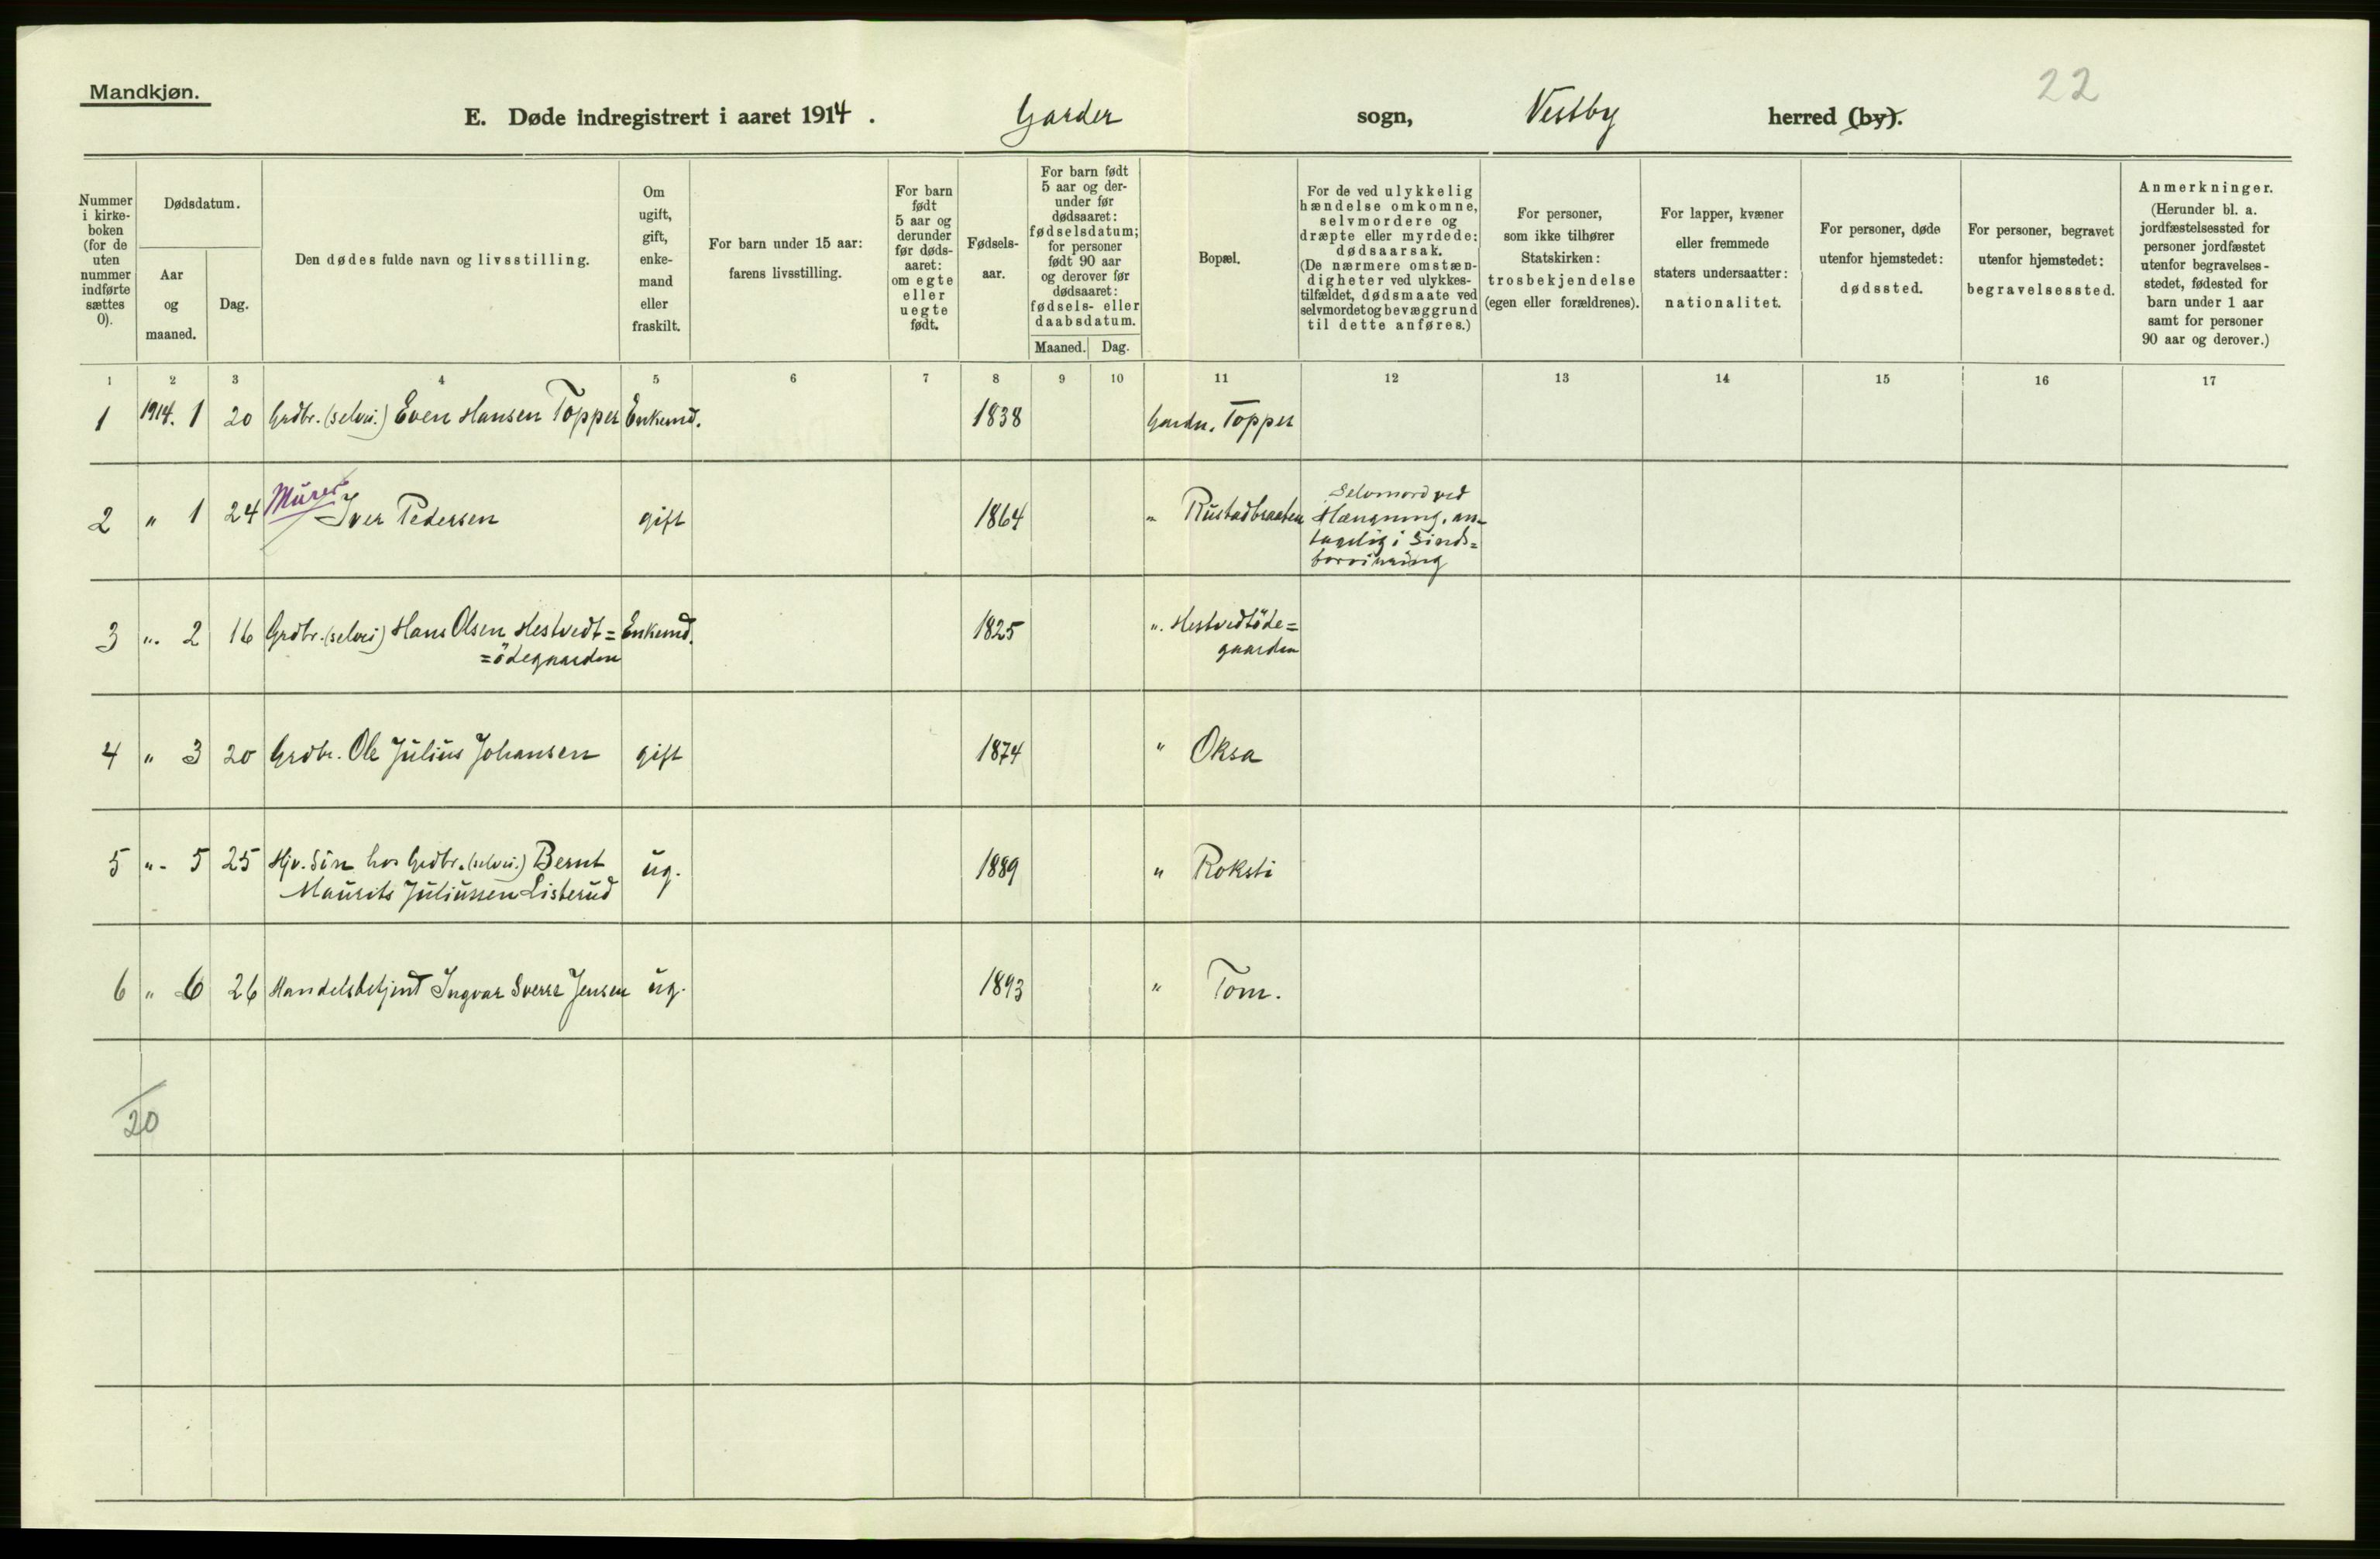 22
Mandkjøn.
E. Døde indregistrert i aaret 1914. Garder sogn, Vestby herred (by).
Nummer i kirke-boken (for de uten nummer indførte sættes 0).
Dødsdatum.
Aar og maaned.
Dag.
Den dødes fulde navn og livsstilling.
Om ugift, gift, enke-mand eller fraskilt.
For barn under 15 aar: farens livsstilling.
For barn født 5 aar og derunder før døds-aaret: om egte eller uegte født.
Fødsels-aar.
For barn født 5 aar og der-under før dødsaaret: fødselsdatum; for personer født 90 aar og derover før dødsaaret: fødsels- eller daabsdatum.
Maaned. Dag.
Bopæl.
For de ved ulykkelig hændelse omkomne, selvmordere og dræpte eller myrdede: dødsaarsak. (De nærmere omstæn-digheter ved ulykkes-tilfældet, dødsmaate ved selvmordet og bevæggrund til dette anføres.)
For personer, som ikke tilhører Statskirken: trosbekjendelse (egen eller forældrenes).
For lapper, kvæner eller fremmede staters undersaatter: nationalitet.
For personer, døde utenfor hjemstedet: dødssted.
For personer, begravet utenfor hjemstedet: begravelsessted.
Anmerkninger. (Herunder bl. a. jordfæstelsessted for personer jordfæstet utenfor begravelses-stedet, fødested for barn under 1 aar samt for personer 90 aar og derover.)
1 2 3 4 5 6 7 8 9 10 11 12 13 14 15 16 17
1 1914. 1 20 Grdbr. (selvei.) Even Hansen Topper Enkemd. 1838 Garder. Topper
2 " 1 24 Murer Iver Pedersen gift 1864 " Rustadbraaten Selvmord ved
Hængning, an-
tagelig i Sinds=
forvirring
3 " 2 16 Grdbr. (selvei) Hans Olsen Hestvedt= Enkemd. 1825 " Hestvedtöde=
=ödegaarden gaarden
4 " 3 20 Grdbr. Ole Julius Johansen gift 1874 " Oksa
5 " 5 25 Hjv. Sön hos Grdbr. (selvei.) Bernt ug. 1889 " Roksti
Maurits Juliussen Listerud
6 " 6 26 Handelsbetjent Ingvar Sverre Jensen ug. 1893 " Tom.
20